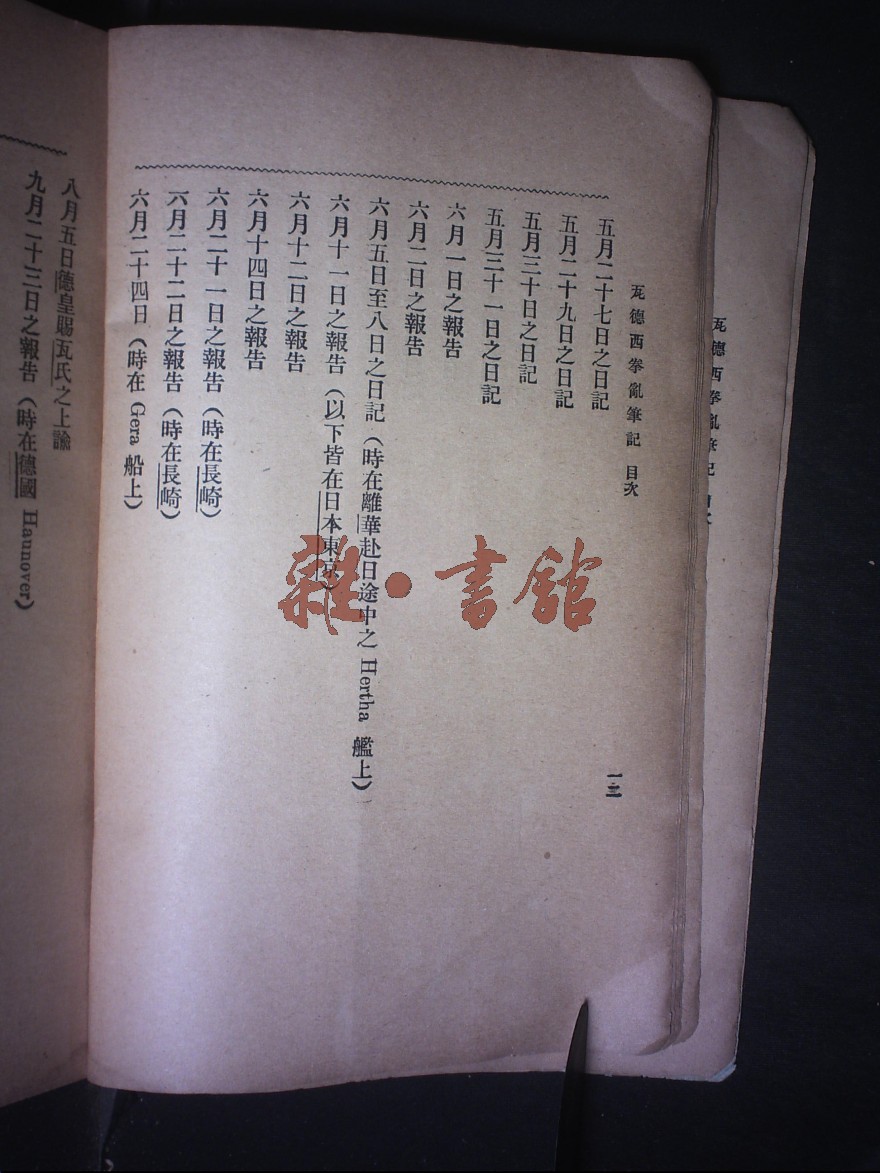 瓦德西拳亂筆記 目次
一三
五月二十七日之日記
五月二十九日之日記
五月三十日之日記
五月三十一日之日記
六月一日之報告
六月二日之報告
六月五日至八日之日記（時在離華赴日途中之 Hertha 艦上）
六月十一日之報告（以下皆在日本東京）
六月十二日之報告
六月十四日之報告
六月二十一日之報告（時在長崎）
六月二十二日之報告（時在長崎）
六月二十四日（時在 Gera 船上）
八月五日德皇賜瓦氏之上諭
九月二十三日之報告（時在德國 Hannover）
雜·書館